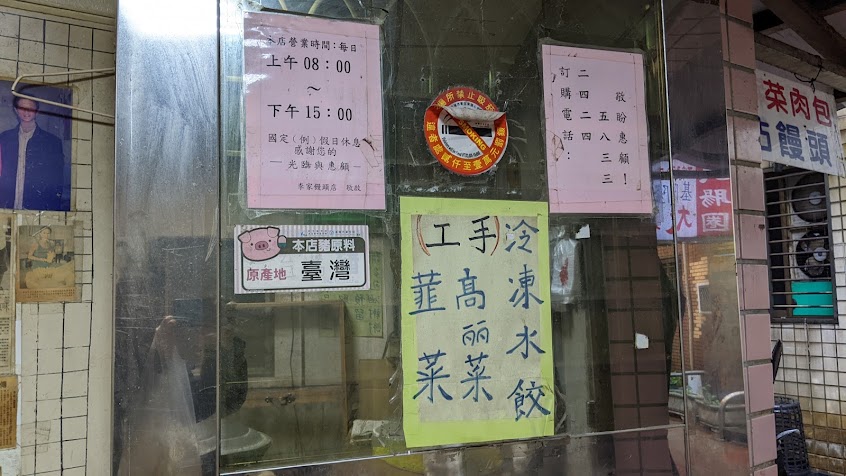 本店營業時間：每日
上午08：00
～
下午15：00
國定（例）假日休息
感謝您的
—光臨與惠顧—
李家饅頭店 敬啟
訂購電話：
二四二四
五八三三
敬盼惠顧！
本店豬原料
原產地 臺灣
冷凍水餃
(手工)
高丽菜
韮菜
菜肉包
饅頭